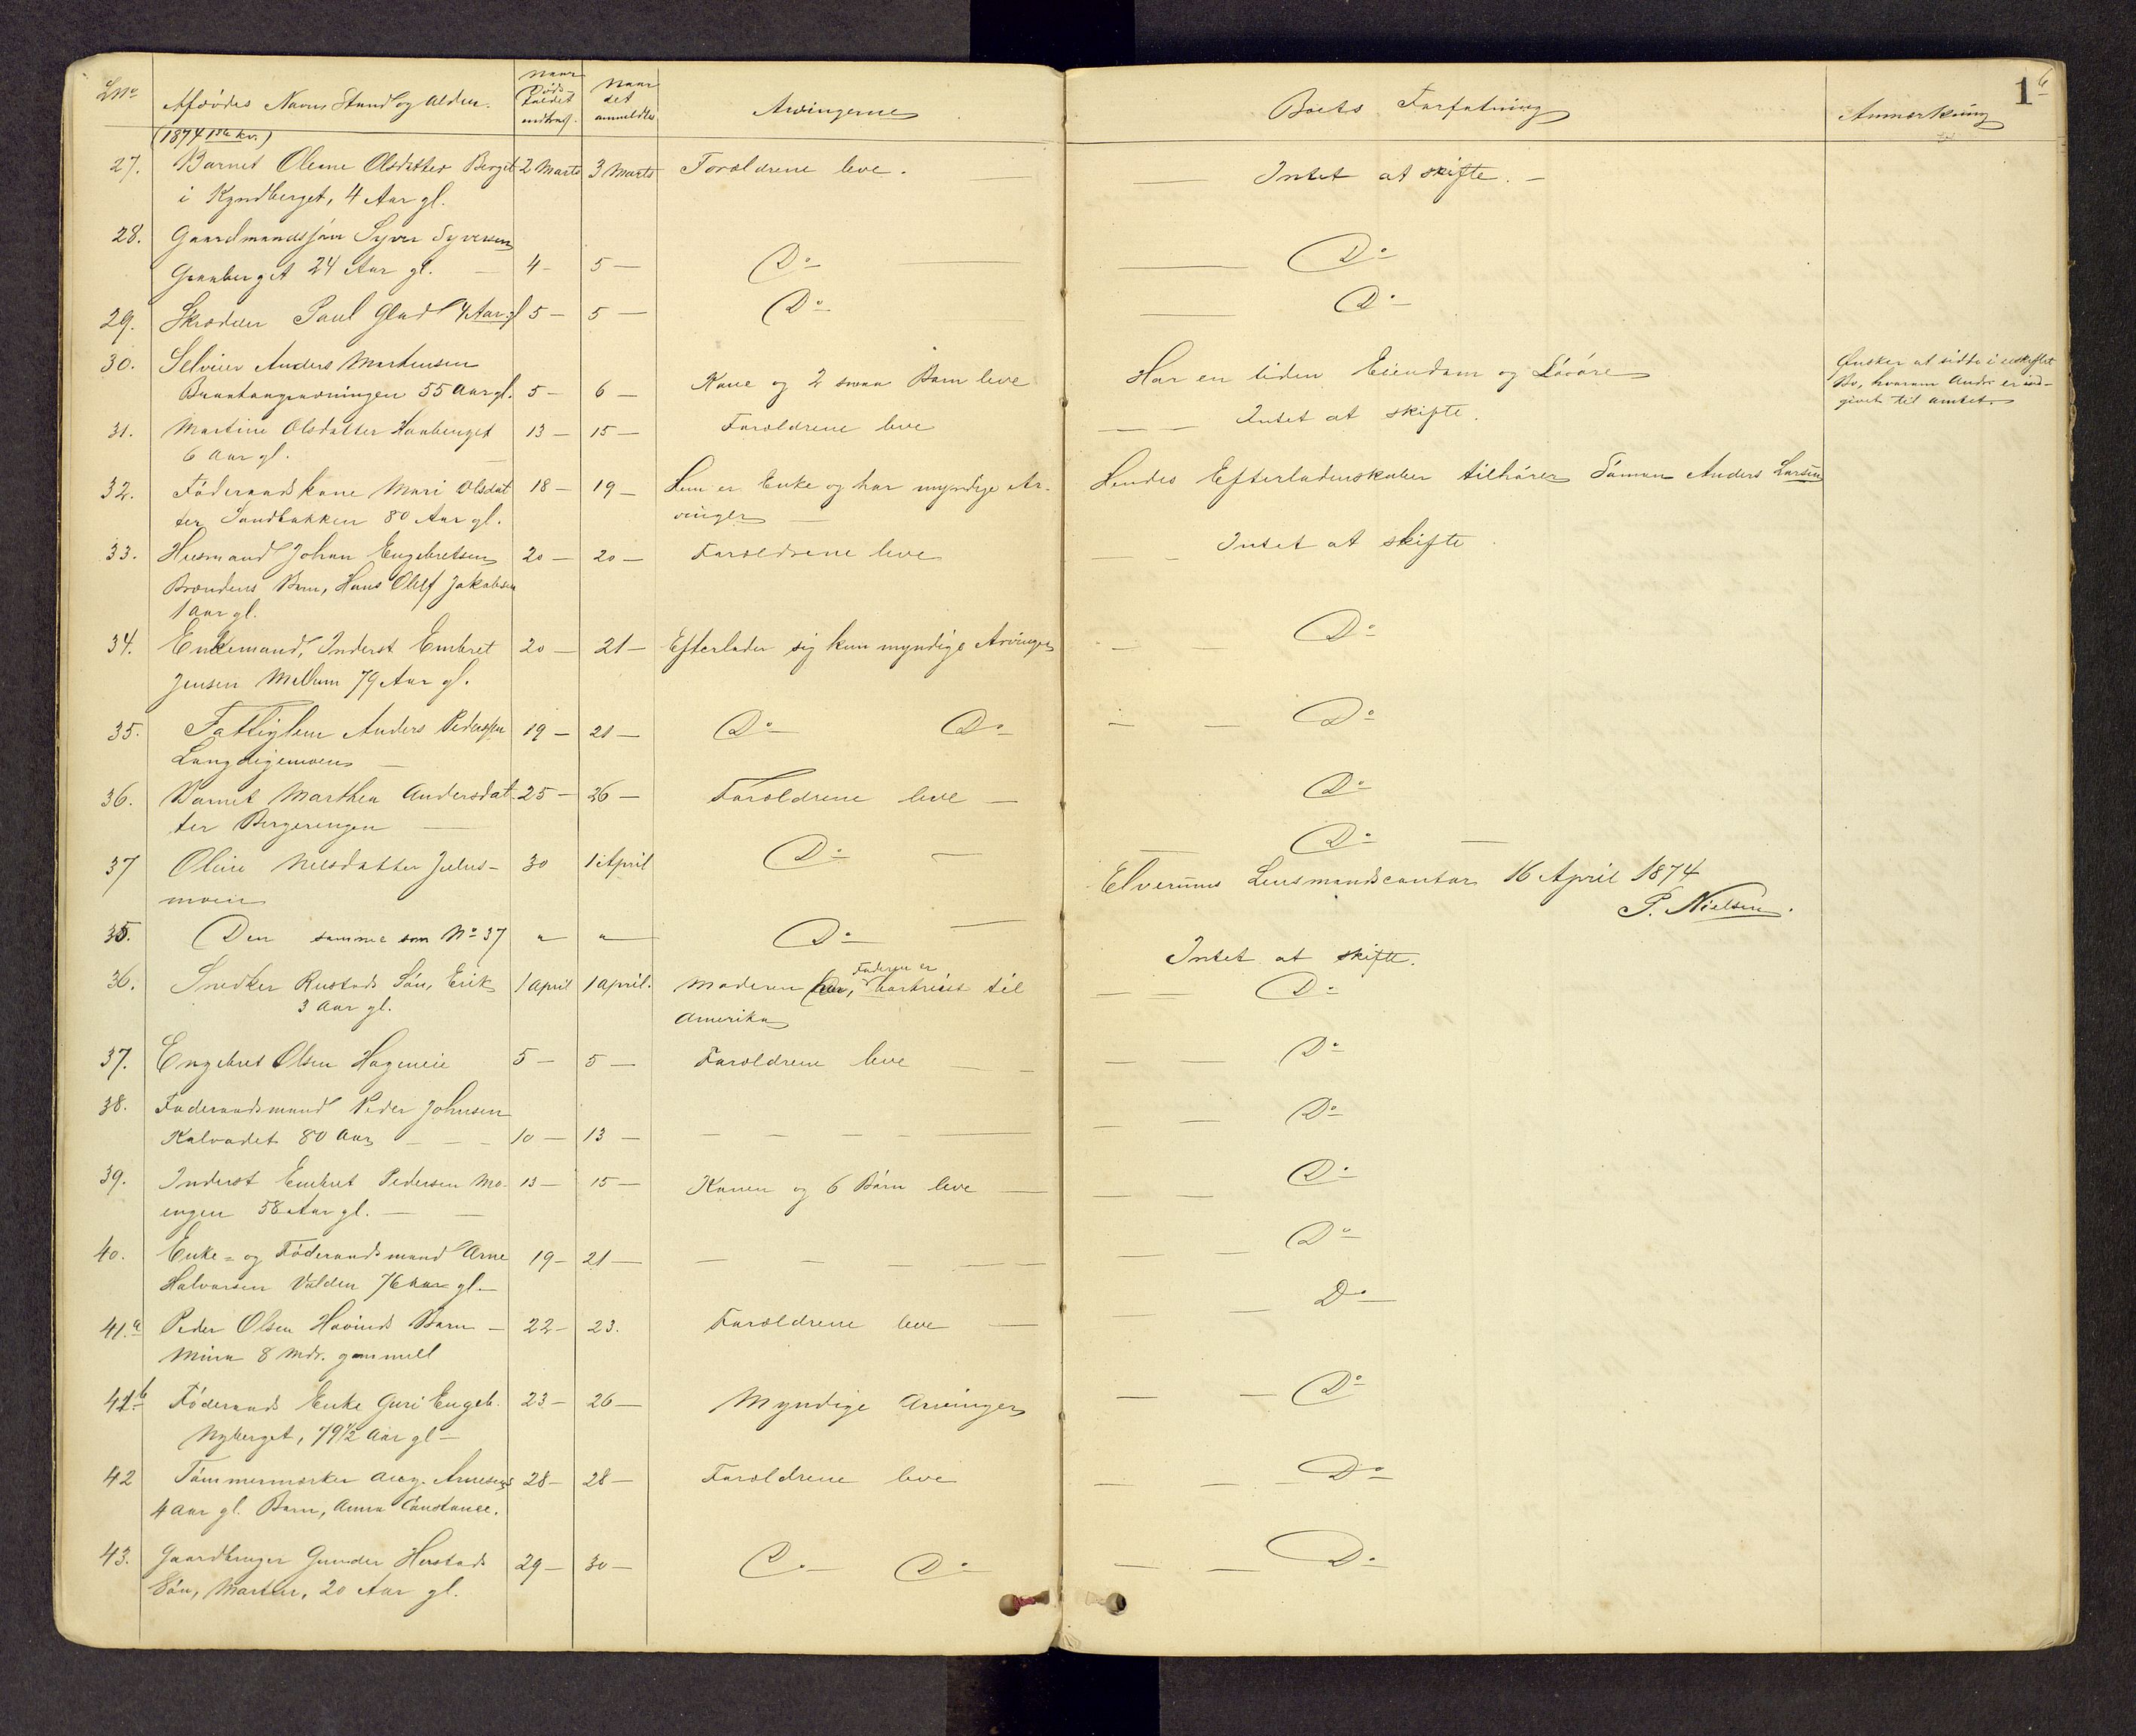 LNo Afdødes Navn Stand og Alder. Naar Dødsfaldet indtraf. Naar det anmeldtes Arvingerne Boets Forfatning Anmærkning 1
(1874 1ste kv.)
27. Barnet Olene Olsdatter Berget 2 Marts 3 Marts Forældrene leve. — Intet at skifte. —
i Kyndberget, 4 Aar gl.
28. Gaardmandssøn Syver Syversen
Graaberget 24 Aar gl. — 4 - 5 — Do — Do
29. Skrædder Paul Glad 4 Aar gl 5 — 5 — Do — Do —
30. Selveier Anders Martinsen
55 Aar gl. 5 — 6 — Kone og 2 smaa Børn leve Har en liden Eiendom og Løsøre Ønsker at sidde i uskiftet
Bo, hvorom Andr. er ind-
givet til Amtet.
31. Martine Olsdatter Haaberget 13 — 15 — Forældrene leve — — Intet at skifte.
6 Aar gl.
32. Føderaadskone Mari Olsdat 18 — 19 — Hun er Enke og har myndige Ar- Hendes Efterladenskaber tilhører Sønnen Anders Larsen
ter Sandbakken 80 Aar gl. vinger —
33. Husmand Johan Engebretsen 20 — 20 — Forældrene leve — Intet at skifte.
Brændens Barn, Hans Oluf Jakobsen
1 Aar gl.
34. Enkemand, Inderst Embret 20 — 21 — Efterlader sig kun myndige Arvinger — — Do
Jensen Mellum 79 Aar gl.
35. Fattiglem Anders Pedersen 19 — 21 — Do Do — — Do
Langdigemoen —
36. Barnet Marthea Andersdat- 25 — 26 — Forældrene leve — Do
ter Bergerengen —
37 Oline Nilsdatter Julus- 30 1 April Do — — Do —
moen
Elverums Lensmandscontor 16 April 1874
P. Nielsen.
35. Den samme som No 37 " " Do —
Intet at skifte.
36. Snedker Rustads Søn, Erik 1 April 1 April. Moderen her, Faderen er bortreist til — — Do
3 Aar gl. Amerika
37. Engebret Olsen Hagemeie 5 — 5 — Forældrene leve — — — — Do
38. Føderaadsmand Peder Johnsen
Kalvadet 80 Aar — — — 10 — 13 — — — — — — — Do
39. Inderst Embret Pedersen Mo- 13 — 15 — Konen og 6 Børn leve — — — Do
engen 58 Aar gl. — —
40. Enke- og Føderaadsmand Arne 19 — 21 — — — — — — — — Do
Halvorsen Volden 76 Aar gl. —
41.a Peder Olsen Hovinds Barn — 22 — 23. Forældrene leve — — — Do —
Mina 8 Mdr. gammell
41.b Føderaads Enke Guri Engeb. 23 — 26 — Myndige Arvinger — — Do
Nyberget, 79 1/2 Aar gl —
42 Tømmermærker Aug. Arnesens 28 — 28 — Forældrene leve — — Do
4 Aar gl. Barn, Anna Constance.
43. Gaardbruger Gunder Herstads 29 — 30 — Do Do — — Do
Søn, Martin, 20 Aar gl.